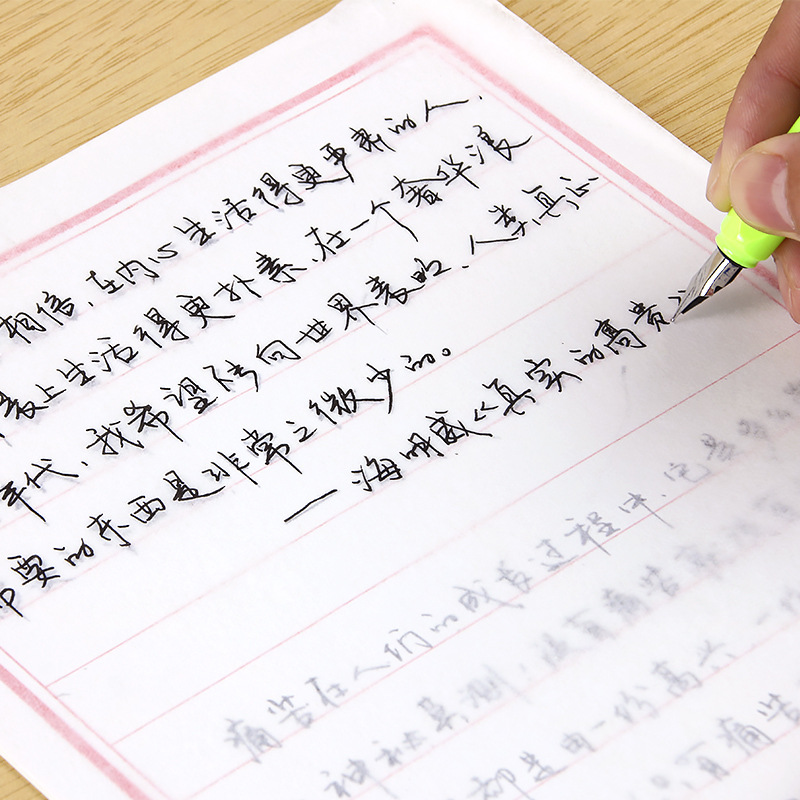 相信,在内心生活得更严肃的人,
表上生活得更朴素,在一个奢华浪
年代,我希望能向世界表明,人类真正
要的东西是非常之微少的。
—海明威《真实的高贵
痛苦在人们的成长过程中,它
神秘莫测:没有痛苦
却是由一份高兴,一
有痛苦